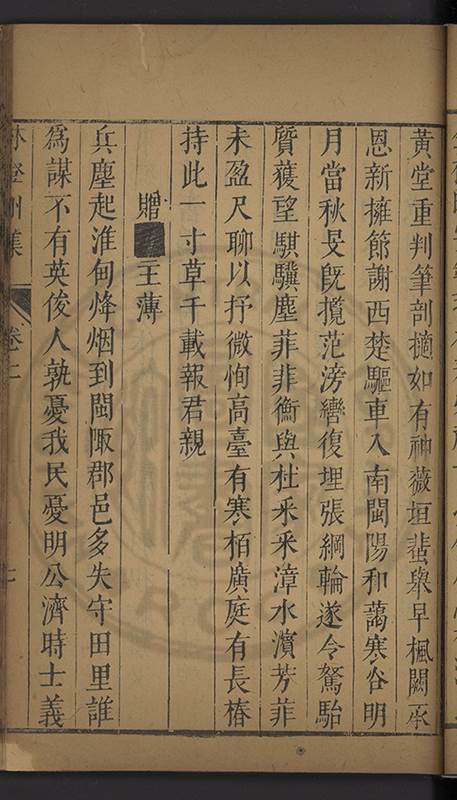 黃堂重判筆剖擿如有神薇垣蜚舉早楓闕承
恩新擁節謝西楚驅車入南閩陽和藹寒谷明
月當秋旻旣攬范滂轡復埋張綱輪遂令駑駘
質獲望騏驥塵菲菲衡與杜釆釆漳水濱芳菲
未盈尺聊以抒微恂高臺有寒栢廣庭有長椿
持此一寸草千載報君親
贈主薄
兵塵起淮甸烽烟到閩陬郡邑多失守田里誰
爲謀不有英俊人孰憂我民憂明公濟時士義
林登州集
卷二